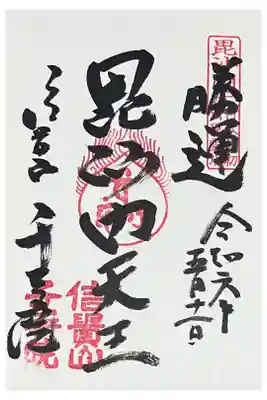 勝運
令和六年
毘沙門天王
信貴山 千手院
信貴山
千手院